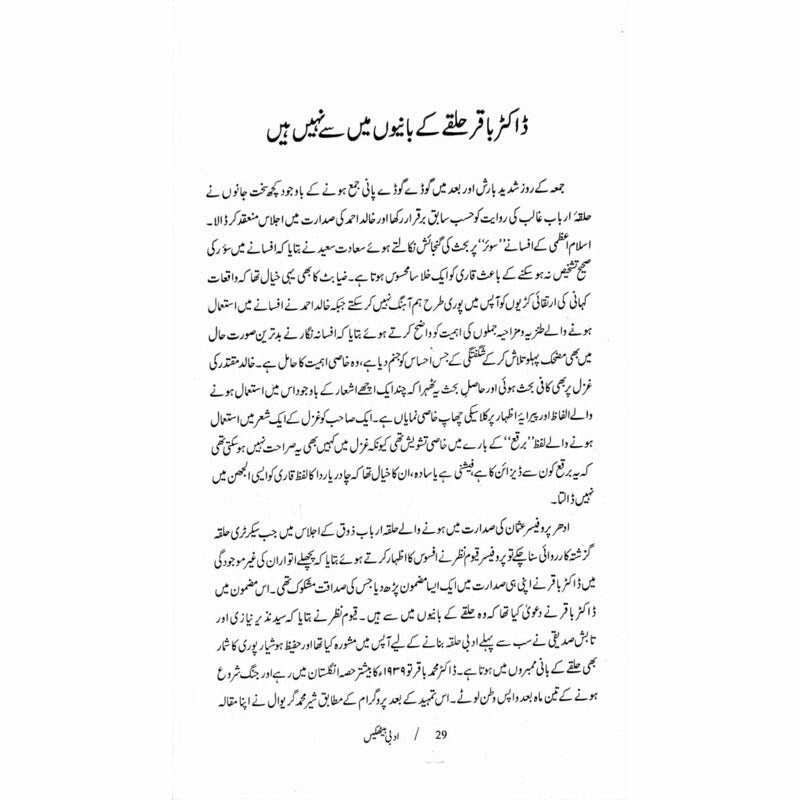 ڈاکٹر باقر حلقے کے بانیوں میں سے نہیں ہیں
جمعہ کے روز شدید بارش اور بعد میں گوڈے گوڈے پانی جمع ہونے کے باوجود کچھ سخت جانوں نے
حلقۂ ارباب غالب کی روایت کو حسب سابق برقرار رکھا اور خالد احمد کی صدارت میں اجلاس منعقد کر ڈالا۔
اسلام اعظمی کے افسانے ”سوئر“ پر بحث کی گنجائش نکالتے ہوئے سعادت سعید نے بتایا کہ افسانے میں سؤر کی
صحیح تشخیص نہ ہو سکنے کے باعث قاری کو ایک خلا سا محسوس ہوتا ہے۔ ضیا بٹ کا بھی یہی خیال تھا کہ واقعات
کہانی کی ارتقائی کڑیوں کو آپس میں پوری طرح ہم آہنگ نہیں کر سکتے جبکہ خالد احمد نے افسانے میں استعمال
ہونے والے طنزیہ و مزاحیہ جملوں کی اہمیت کو واضح کرتے ہوئے بتایا کہ افسانہ نگار نے بدترین صورت حال
میں بھی مضحک پہلو تلاش کر کے شگفتگی کے جس احساس کو جنم دیا ہے، وہ خاصی اہمیت کا حامل ہے۔ خالد مقتدر کی
غزل پر بھی کافی بحث ہوئی اور حاصل بحث یہ ٹھہرا کہ چند ایک اچھے اشعار کے باوجود اس میں استعمال ہونے
والے الفاظ اور پیرایۂ اظہار پر کلاسیکی چھاپ خاصی نمایاں ہے۔ ایک صاحب کو غزل کے ایک شعر میں استعمال
ہونے والے لفظ ”برقع“ کے بارے میں خاصی تشویش تھی کیونکہ غزل میں کہیں بھی یہ صراحت نہیں ہو سکتی تھی
کہ یہ برقع کون سے ڈیزائن کا ہے، فیشنی ہے یا سادہ، ان کا خیال تھا کہ چادر یا ردا کا لفظ قاری کو ایسی الجھن میں
نہیں ڈالتا۔
ادھر پروفیسر عثمان کی صدارت میں ہونے والے حلقہ ارباب ذوق کے اجلاس میں جب سیکرٹری حلقہ
گزشتہ کارروائی سنا چکے تو پروفیسر قیوم نظر نے افسوس کا اظہار کرتے ہوئے بتایا کہ پچھلے اتوار ان کی غیر موجودگی
میں ڈاکٹر باقر نے اپنی ہی صدارت میں ایک ایسا مضمون پڑھ دیا جس کی صداقت مشکوک تھی۔ اس مضمون میں
ڈاکٹر باقر نے دعویٰ کیا تھا کہ وہ حلقے کے بانیوں میں سے ہیں۔ قیوم نظر نے بتایا کہ سید نذیر نیازی اور
تابش صدیقی نے سب سے پہلے ادبی حلقہ بنانے کے لیے آپس میں مشورہ کیا تھا اور حفیظ ہوشیار پوری کا شمار
بھی حلقے کے بانی ممبروں میں ہوتا ہے۔ ڈاکٹر محمد باقر تو ۱۹۳۹ء کا بیشتر حصہ انگلستان میں رہے اور جنگ شروع
ہونے کے تین ماہ بعد واپس وطن لوٹے۔ اس تمہید کے بعد پروگرام کے مطابق شیر محمد گریوال نے اپنا مقالہ
ادبی بیٹھکیں / 29